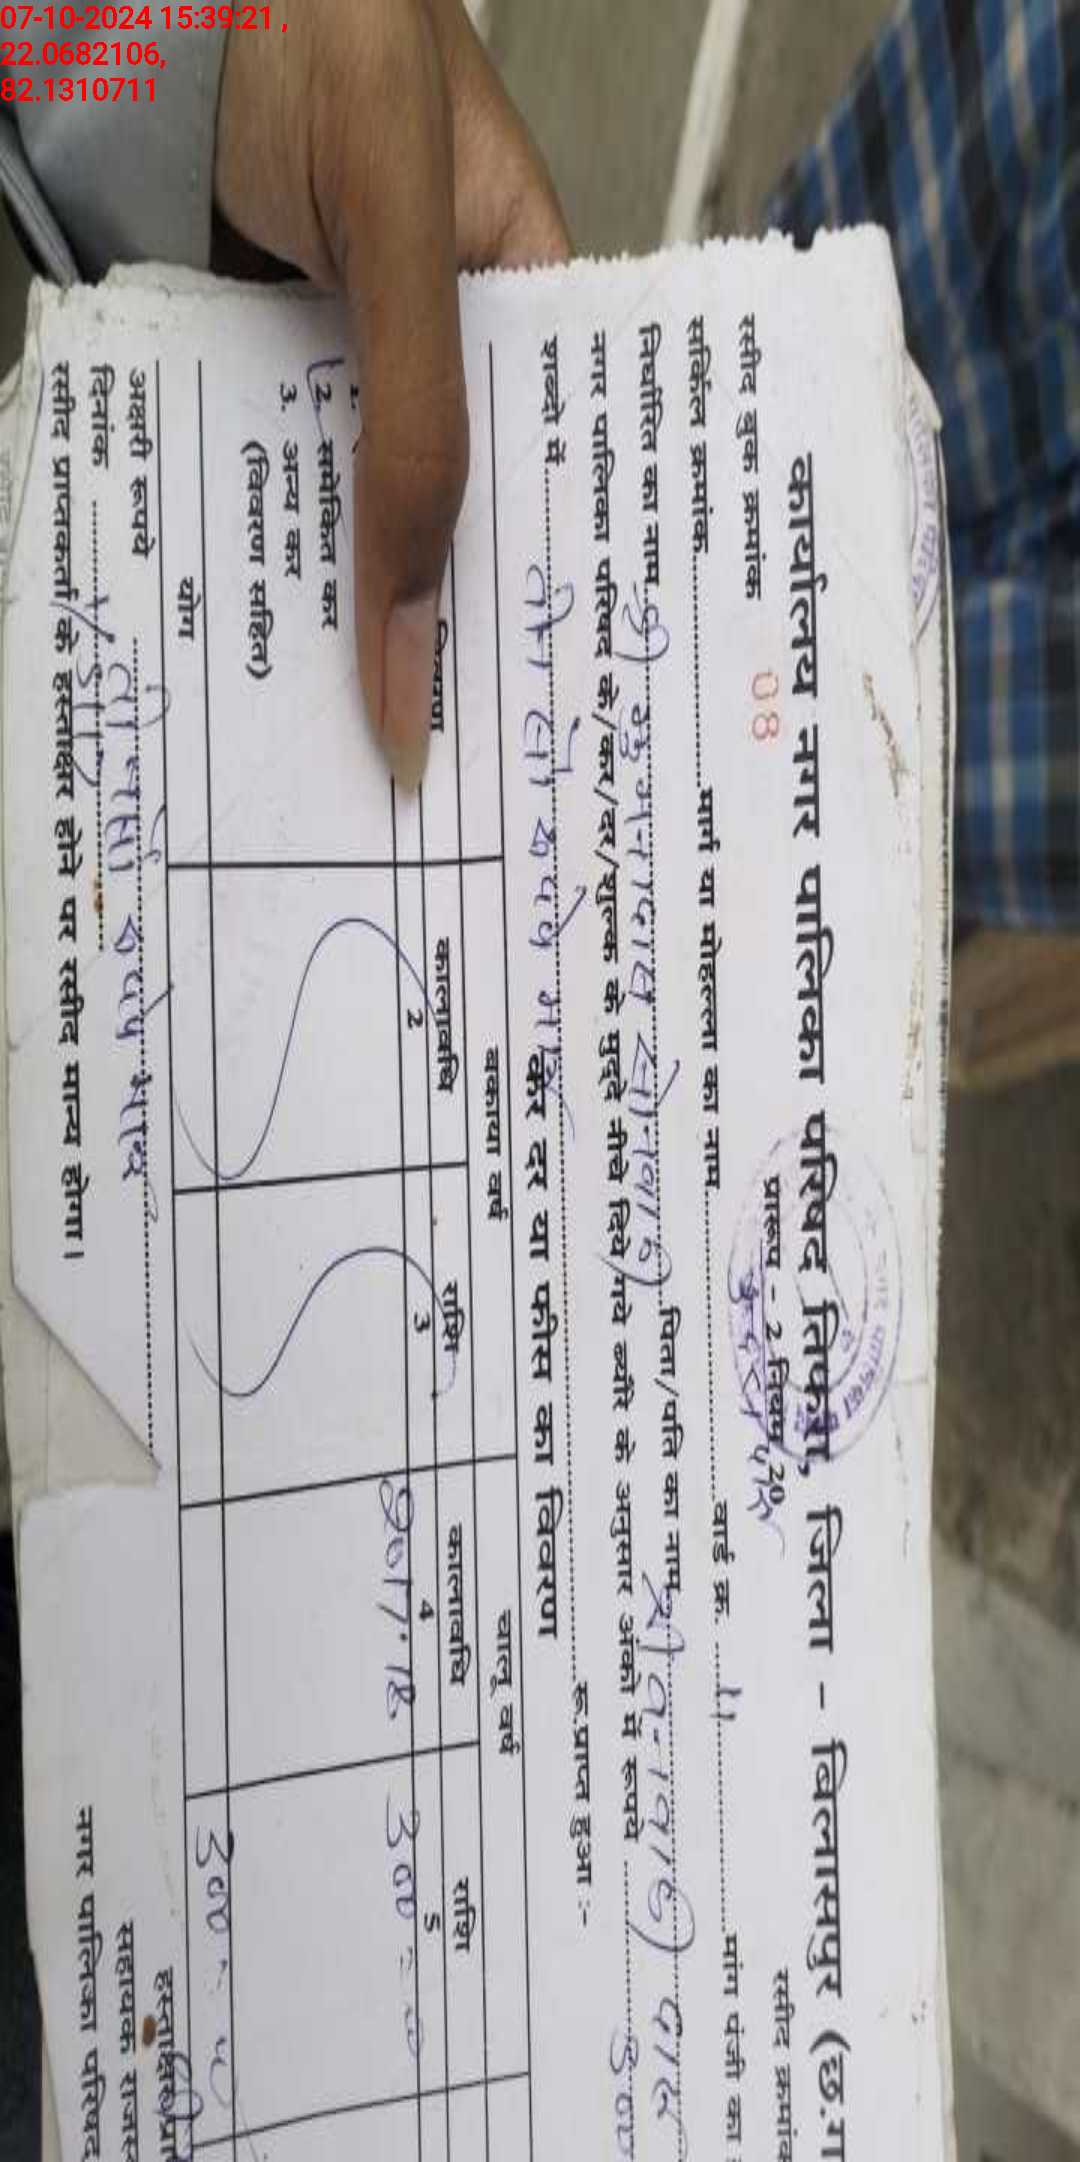 07-10-2024 15:39:21 ,
22.0682106,
82.1310711
कार्यालय नगर पालिका परिषद तिफरा, जिला - बिलासपुर (छ.ग
प्रारूप - 2 नियम 20
रसीद बुक क्रमांक 08 रसीद क्रमांक
सर्किल क्रमांक............मार्ग या मोहल्ला का नाम............वार्ड क्र. ....11....मांग पंजी का
निर्धारित का नाम............पिता/पति का नाम............
नगर पालिका परिषद के/कर/दर/शुल्क के मुद्दे नीचे दिये गये ब्यौरे के अनुसार अंको में रूपये ......300
शब्दो में......तीन सौ रूपये मात्र............रू.प्राप्त हुआ :-
कर दर या फीस का विवरण
बकाया वर्ष चालू वर्ष
कालावधि राशि कालावधि राशि
2 3 4 5
1. 2017-18 300
2. समेकित कर
3. अन्य कर
(विवरण सहित)
योग 300
अक्षरी रूपये ......तीन सौ रूपये मात्र......
दिनांक ............
रसीद प्राप्तकर्ता के हस्ताक्षर होने पर रसीद मान्य होगा।
सहायक राजस्
नगर पालिका परिषद